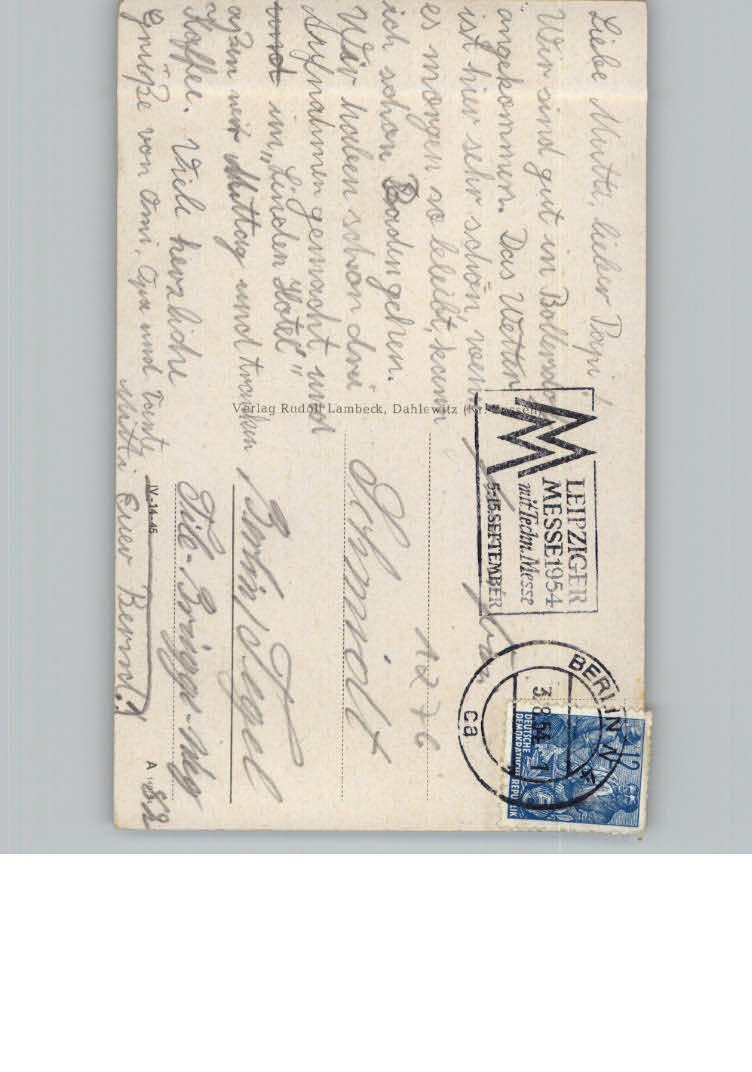 Liebe Mutti, lieber Papi!
Wir sind gut in Bollersdorf
angekommen. Das Wetter
ist hier sehr schön, wenn
es morgen so bleibt, kann
ich schon Baden gehen.
Wir haben schon drei
Aufnahmen gemacht, und
und im „Linden Hotel“
aßen wir Mittag und tranken
Kaffee. Viele herzliche
Grüße von Omi, Opa und Tante
Mutti Euer Bernd!
Verlag Rudolf Lambeck, Dahlewitz
IV-14-45
LEIPZIGER
MESSE 1954
mit Techn. Messe
5.-15. SEPTEMBER
BERLIN N 4
3.8.54
ca
12
DEUTSCHE
DEMOKRATISCHE REPUBLIK
Schmidt
Berlin/Tegel
82
A